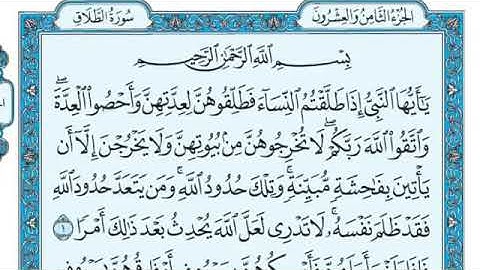 سُورَةُ الطَّلَاقِ الجُزْءُ الثَّامِنُ وَالعِشْرُونَ
بِسْمِ اللَّهِ الرَّحْمَٰنِ الرَّحِيمِ
يَٰٓأَيُّهَا النَّبِيُّ إِذَا طَلَّقْتُمُ النِّسَآءَ فَطَلِّقُوهُنَّ لِعِدَّتِهِنَّ وَأَحْصُوا۟ الْعِدَّةَ ۖ
وَاتَّقُوا۟ اللَّهَ رَبَّكُمْ ۖ لَا تُخْرِجُوهُنَّ مِنۢ بُيُوتِهِنَّ وَلَا يَخْرُجْنَ إِلَّآ أَن
يَأْتِينَ بِفَٰحِشَةٍ مُّبَيِّنَةٍ ۚ وَتِلْكَ حُدُودُ اللَّهِ ۚ وَمَن يَتَعَدَّ حُدُودَ اللَّهِ
فَقَدْ ظَلَمَ نَفْسَهُۥ ۚ لَا تَدْرِى لَعَلَّ اللَّهَ يُحْدِثُ بَعْدَ ذَٰلِكَ أَمْرًا ١